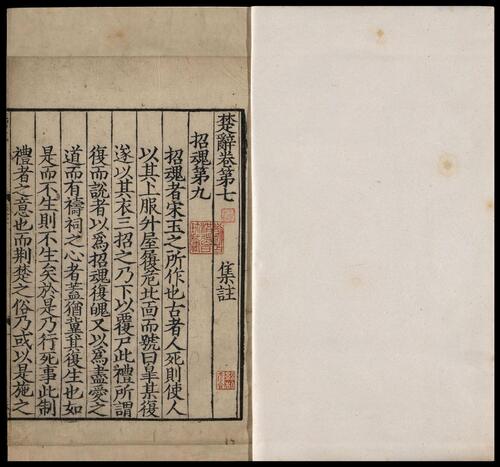 楚辭卷第七
集註
招魂第九
招魂者宋玉之所作也古者人死則使人
以其上服升屋履危北面而號曰皋某復
遂以其衣三招之乃下以覆尸此禮所謂
復而說者以為招魂復魄又以為盡愛之
道而有禱祠之心者蓋猶冀其復生也如
是而不生則不生矣於是乃行死事此制
禮者之意也而荆楚之俗乃或以是施之